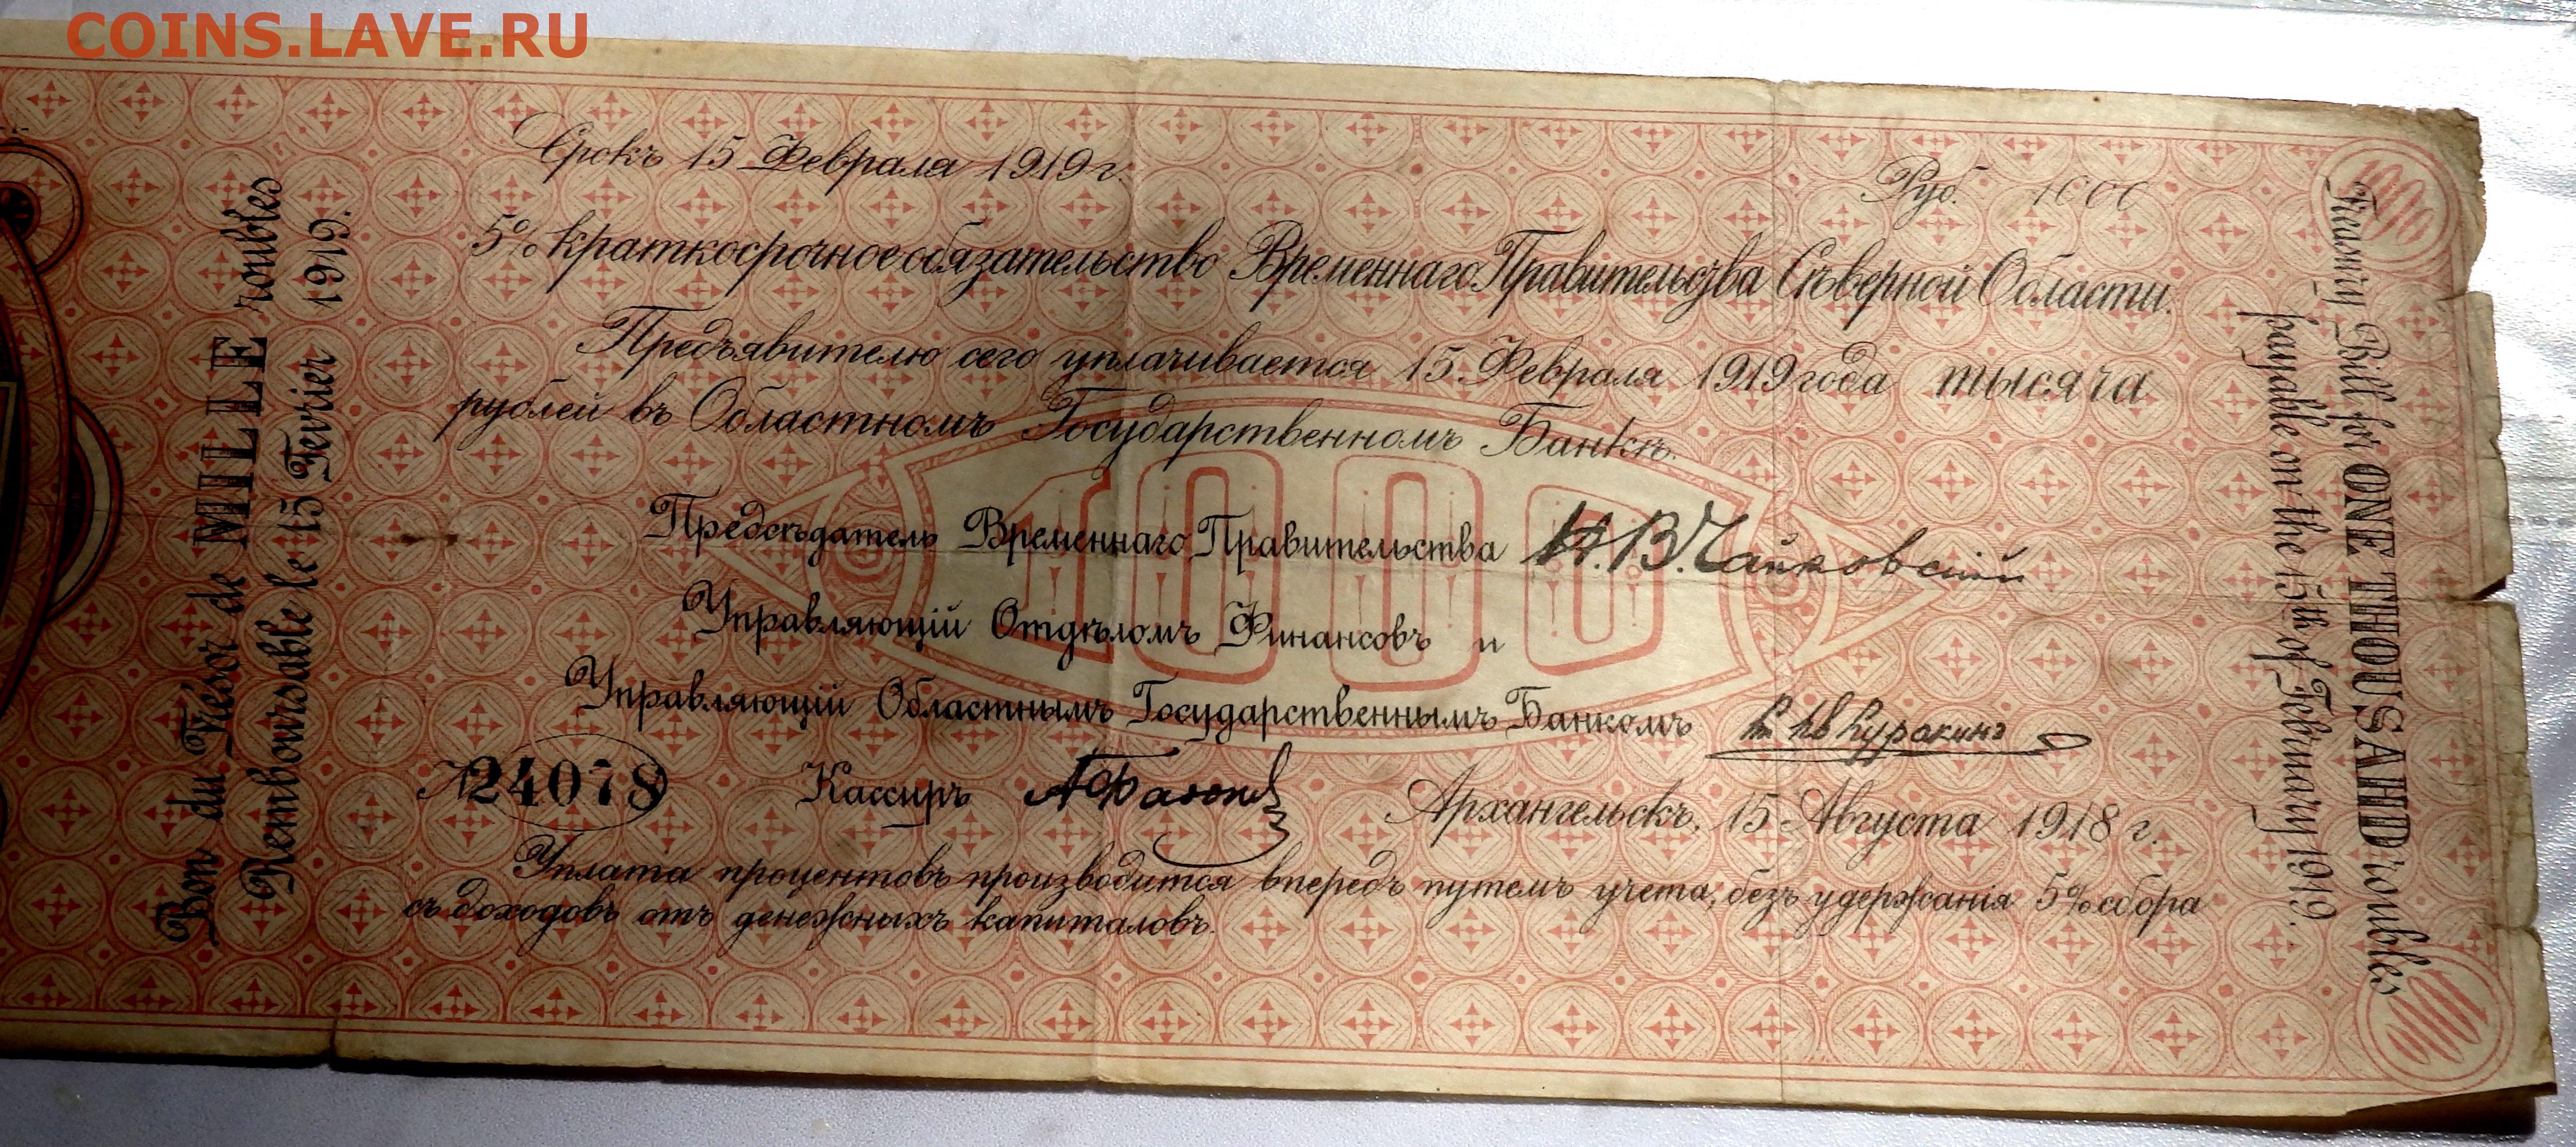 COINS.LAVE.RU
Bon du Trésor de MILLE roubles
Remboursable le 15 Fevrier 1919.
Срокъ 15 Февраля 1919 г.
Руб. 1000
5% краткосрочное обязательство Временнаго Правительства Сѣверной Области.
Предъявителю сего уплачивается 15 Февраля 1919 года тысяча
рублей въ Областномъ Государственномъ Банкѣ.
1000
Предсѣдатель Временнаго Правительства Н.В.Чайковскій
Управляющій Отдѣломъ Финансовъ и
Управляющій Областнымъ Государственнымъ Банкомъ Куракинъ
№ 24078 Кассиръ
Архангельскъ, 15 Августа 1918 г.
Уплата процентовъ производится впередъ путемъ учета, безъ удержанія 5% сбора
съ доходовъ отъ денежныхъ капиталовъ.
Treasury Bill for ONE THOUSAND roubles
payable on the 15th of February 1919.